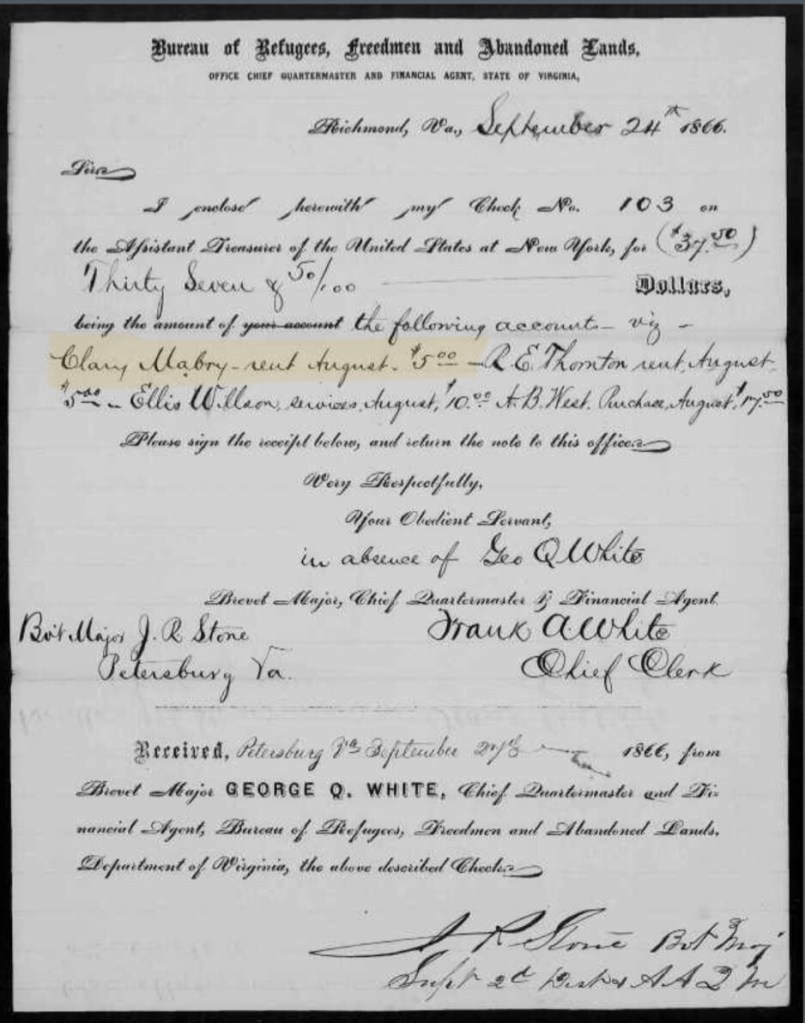 Bureau of Refugees, Freedmen and Abandoned Lands,
OFFICE CHIEF QUARTERMASTER AND FINANCIAL AGENT, STATE OF VIRGINIA,
Richmond, Va., September 24th 1866.
Sir
I enclose herewith my Check No. 103 on
the Assistant Treasurer of the United States at New York, for ($37.50)
Thirty Seven & 50/100 Dollars,
being the amount of your account the following accounts - viz -
Clary Mabry - rent August - $5.00 - R. E. Thornton rent, August,
$5.00 - Ellis Willson, services, August, $10.00 A. B. West. Purchase, August, $17.50
Please sign the receipt below, and return the note to this office.
Very Respectfully,
Your Obedient Servant,
in absence of Geo Q White
Brevet Major, Chief Quartermaster & Financial Agent.
Bvt Major J. R. Stone Frank A. White
Petersburg Va. Chief Clerk
Received, Petersburg Va September 1866, from
Brevet Major GEORGE Q. WHITE, Chief Quartermaster and Fi-
nancial Agent, Bureau of Refugees, Freedmen and Abandoned Lands,
Department of Virginia, the above described Check.
J R Stone Bvt Maj
Supt 2d Dist & A A Q M